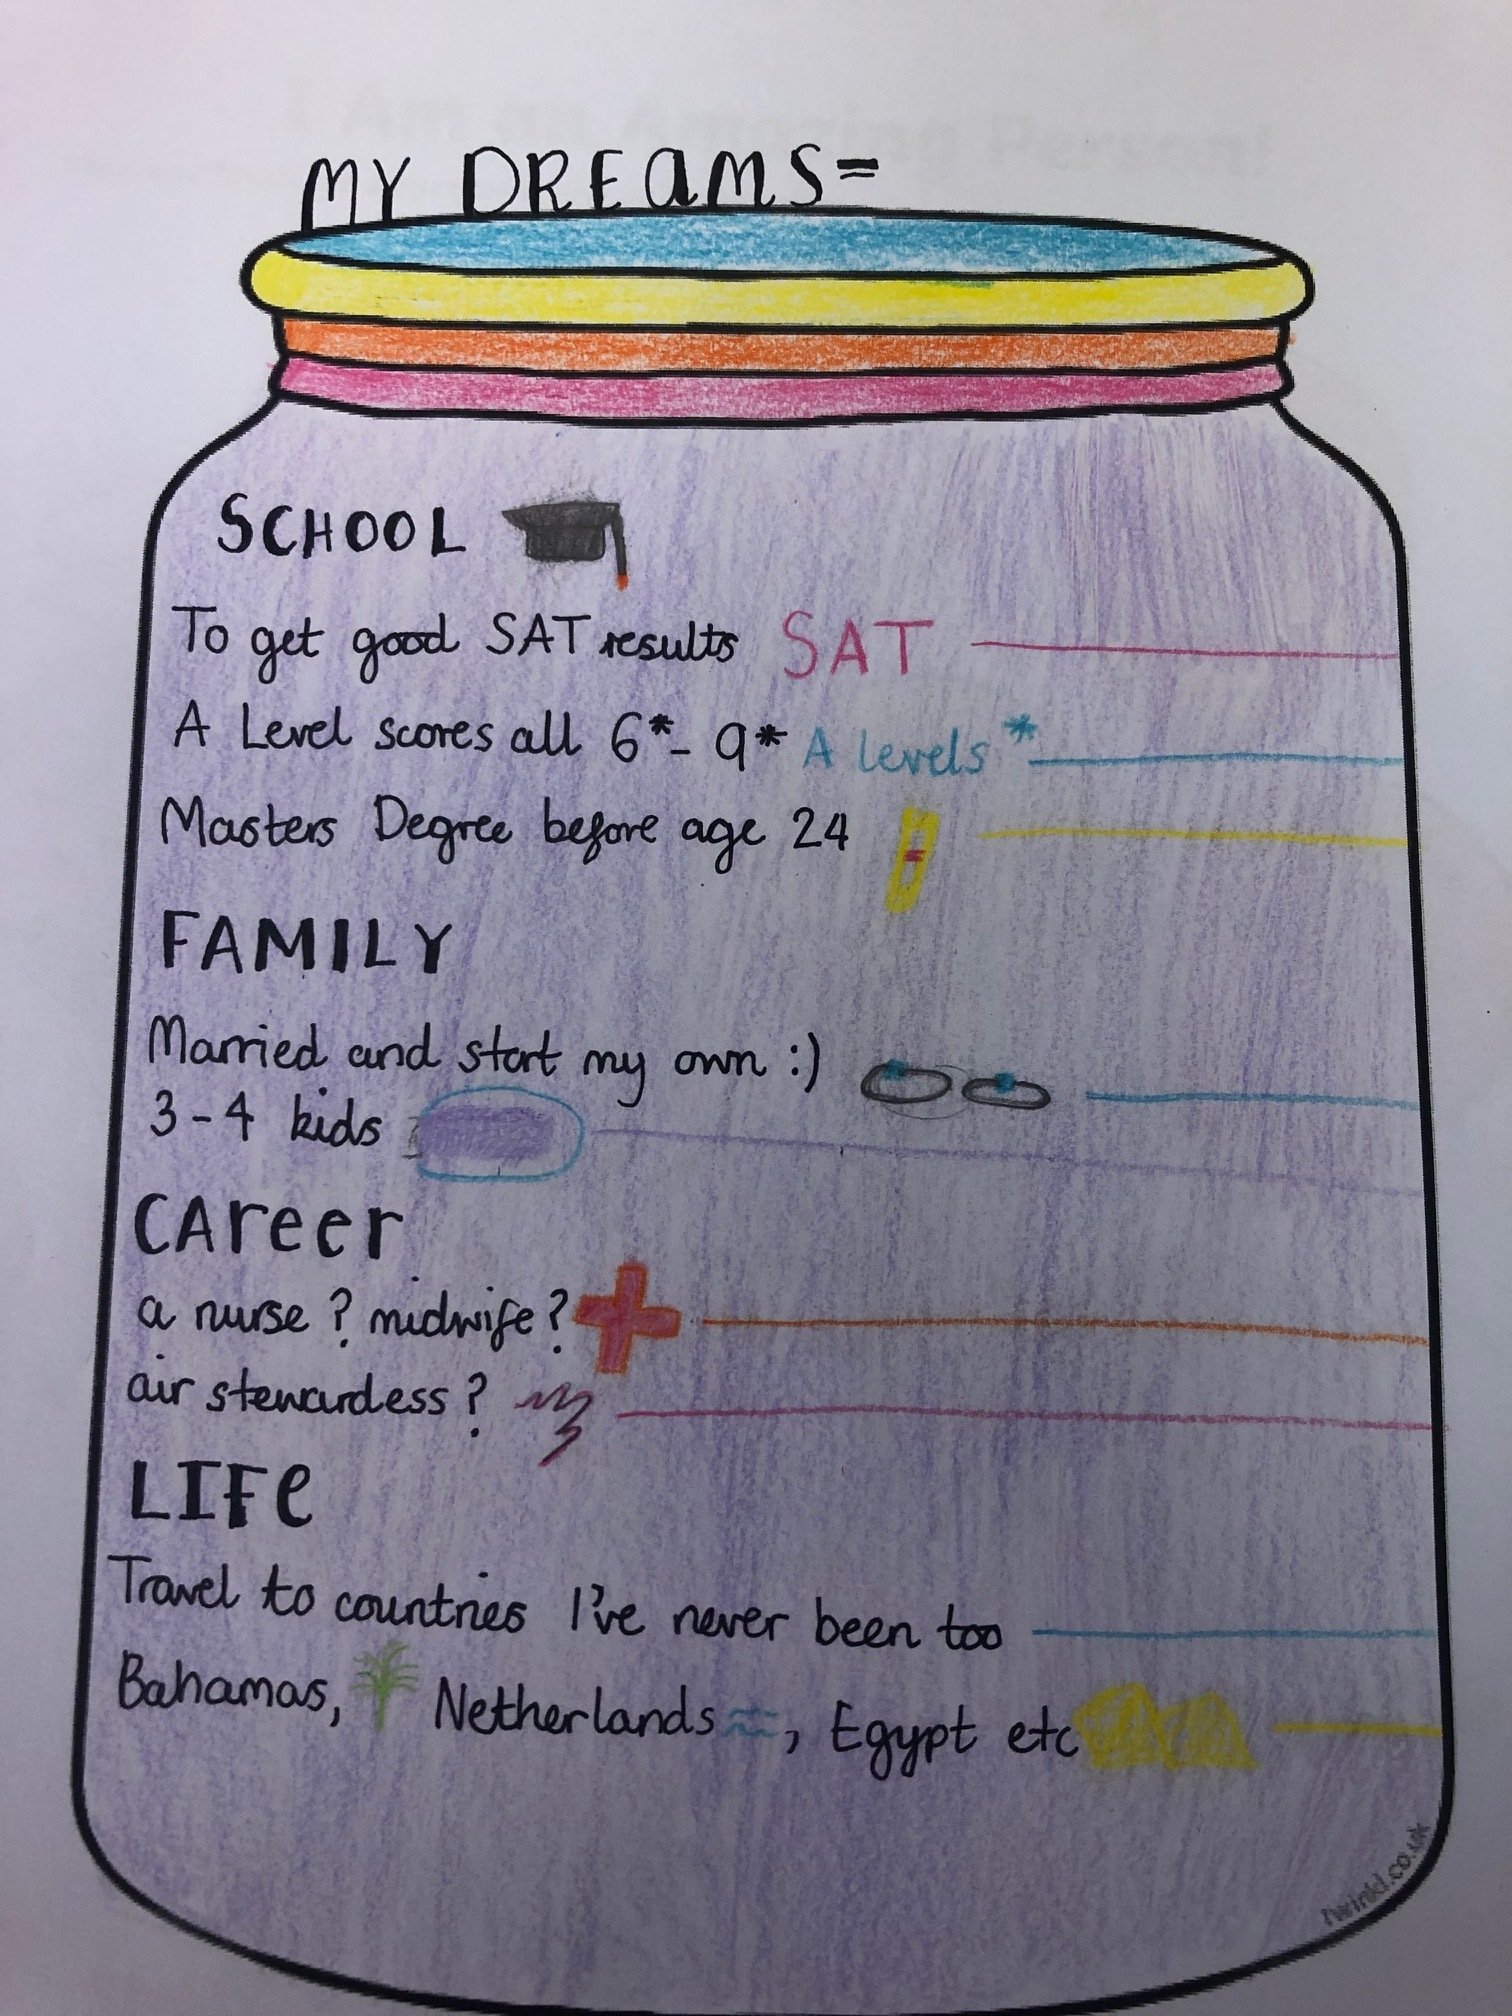 MY DREAMS=
SCHOOL
To get good SAT results SAT
A Level scores all 6*- 9* A levels *
Masters Degree before age 24
FAMILY
Married and start my own :)
3-4 kids
CAreer
a nurse? midwife?
air stewardess?
LIFe
Travel to countries I've never been too
Bahamas, Netherlands, Egypt etc
twinkl.co.uk